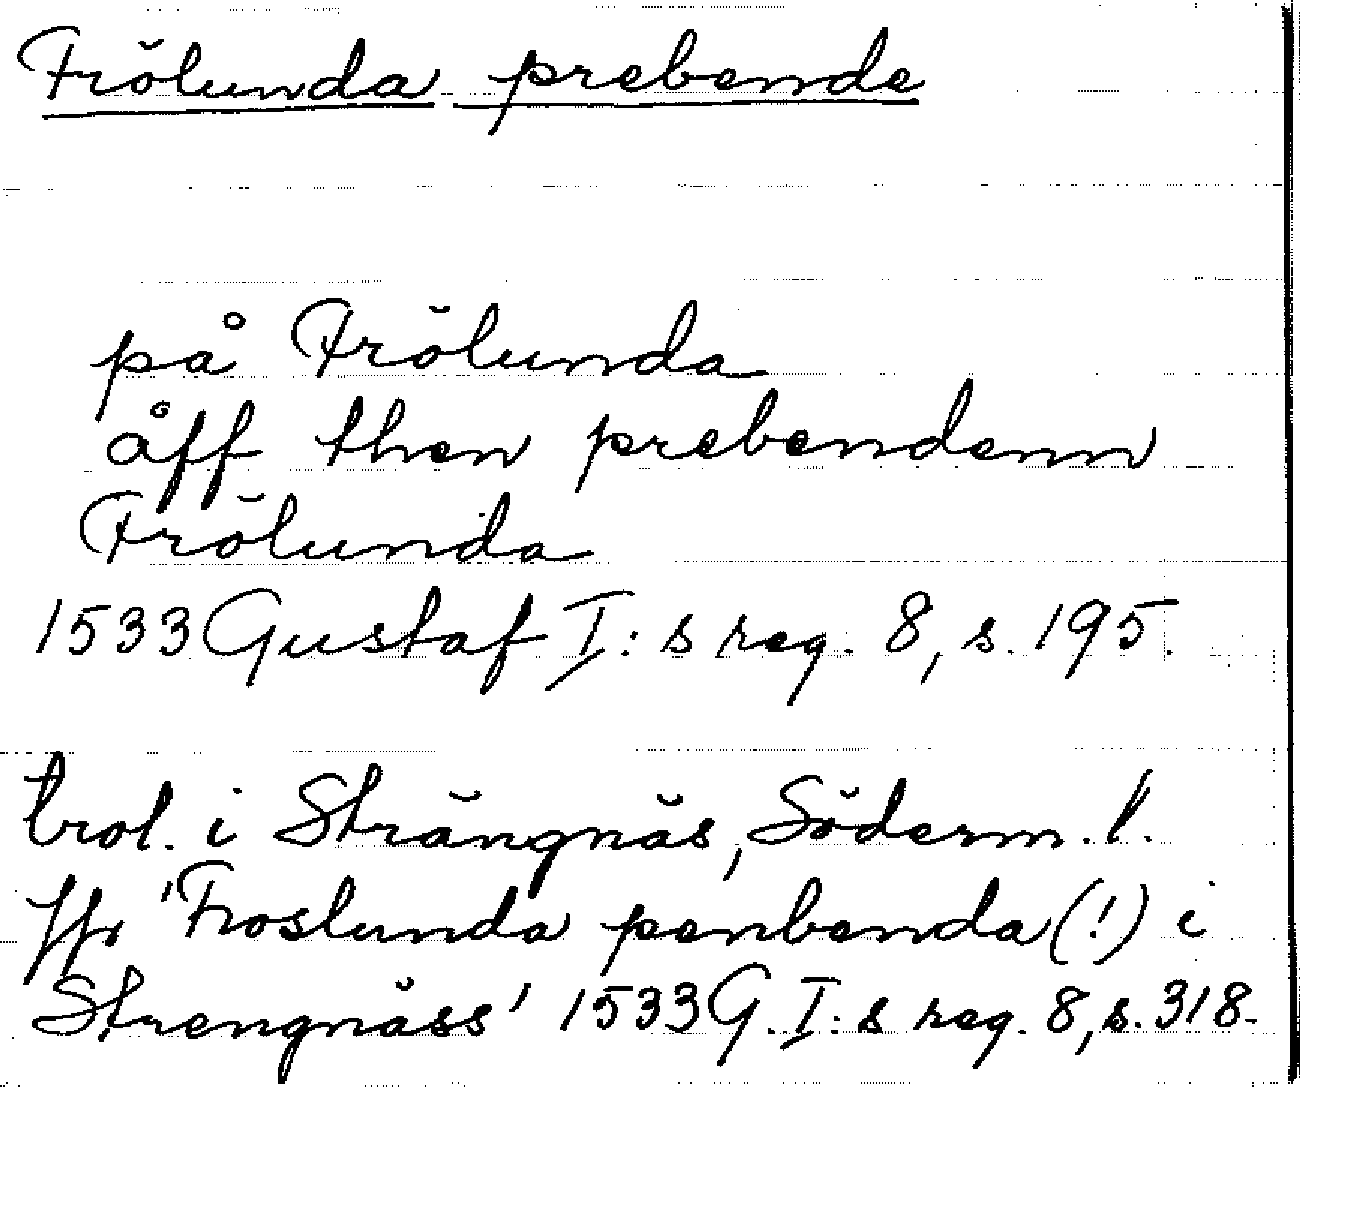 Frölunda prebende
på Frölunda
åff then prebendenn
Frölunda
1533 Gustaf I:s reg. 8, s. 195.
trol. i Strängnäs, Söderm. l.
Jfr 'Froslunda penbenda (!) i
Strengnäss' 1533 G. I:s reg. 8, s. 318.